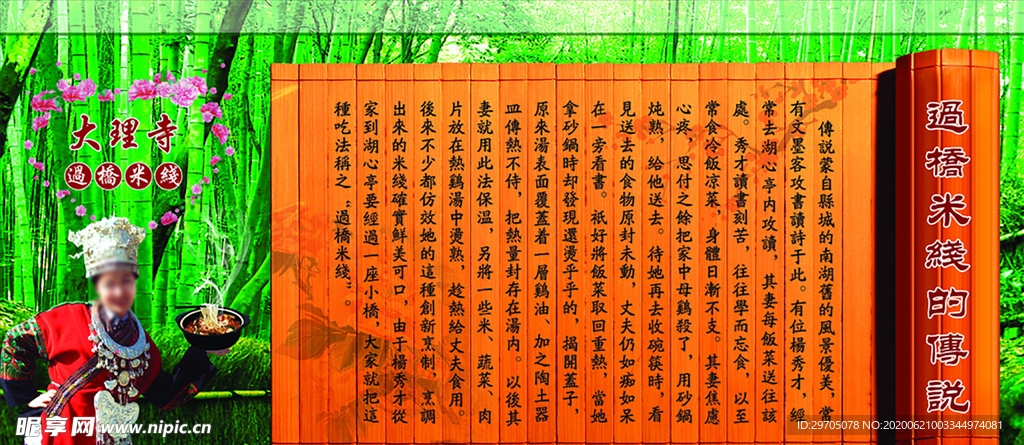 過橋米綫的傳説
傳説蒙自縣城的南湖舊的風景優美，常
有文墨客攻書讀詩于此。有位楊秀才，經
常去湖心亭内攻讀，其妻每飯菜送往該
處。秀才讀書刻苦，往往學而忘食，以至
常食冷飯凉菜，身體日漸不支。其妻焦慮
心疼，思付之餘把家中母鷄殺了，用砂鍋
炖熟，給他送去。待她再去收碗筷時，看
見送去的食物原封未動，丈夫仍如痴如呆
在一旁看書。祇好將飯菜取回重熱，當她
拿砂鍋時却發現還燙乎乎的，揭開蓋子，
原來湯表面覆蓋着一層鷄油、加之陶土器
皿傳熱不佳，把熱量封存在湯内。以後其
妻就用此法保温，另將一些米、蔬菜、肉
片放在熱鷄湯中燙熟，趁熱給丈夫食用。
後來不少都仿效她的這種創新烹制，烹調
出來的米綫確實鮮美可口，由于楊秀才從
家到湖心亭要經過一座小橋，大家就把這
種吃法稱之“過橋米綫”。
大理寺
過橋米綫
昵享网 www.nipic.cn
ID:29705078 NO:20200621003344974081